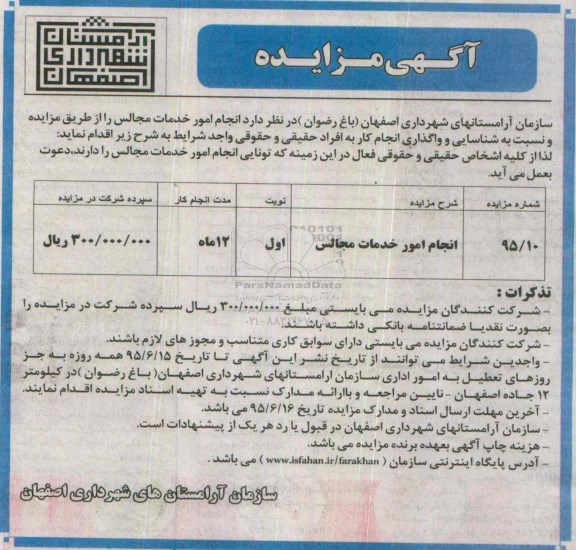 آرامستان
شهرداری
اصفهان
آگهی مزایده
سازمان آرامستانهای شهرداری اصفهان (باغ رضوان )در نظر دارد انجام امور خدمات مجالس را از طریق مزایده
و نسبت به شناسایی و واگذاری انجام کار به افراد حقیقی و حقوقی واجد شرایط به شرح زیر اقدام نماید:
لذا از کلیه اشخاص حقیقی و حقوقی فعال در این زمینه که تونایی انجام امور خدمات مجالس را دارند،دعوت
بعمل می آید.
شماره مزایده شرح مزایده نوبت مدت انجام کار سپرده شرکت در مزایده
۹۵/۱۰ انجام امور خدمات مجالس اول ۱۲ماه ۳۰۰/۰۰۰/۰۰۰ ریال
ParsNamadData
تذکرات :
- شرکت کنندگان مزایده می بایستی مبلغ ۳۰۰/۰۰۰/۰۰۰ ریال سپرده شرکت در مزایده را
بصورت نقدیا ضمانتنامه بانکی داشته باشند.
- شرکت کنندگان مزایده می بایستی دارای سوابق کاری متناسب و مجوز های لازم باشند.
- واجدین شرایط می توانند از تاریخ نشر این آگهی تا تاریخ ۹۵/۶/۱۵ همه روزه به جز
روزهای تعطیل به امور اداری سازمان ارامستانهای شهرداری اصفهان( باغ رضوان )در کیلومتر
۱۲ جاده اصفهان - نایین مراجعه و باارائه مدارک نسبت به تهیه اسناد مزایده اقدام نمایند.
- آخرین مهلت ارسال اسناد و مدارک مزایده تاریخ ۹۵/۶/۱۶ می باشد.
- سازمان آرامستانهای شهرداری اصفهان در قبول یا رد هر یک از پیشنهادات است.
- هزینه چاپ آگهی بعهده برنده مزایده می باشد.
- آدرس پایگاه اینترنتی سازمان ( www.isfahan.ir/farakhan ) می باشد .
سازمان آرامستان های شهرداری اصفهان